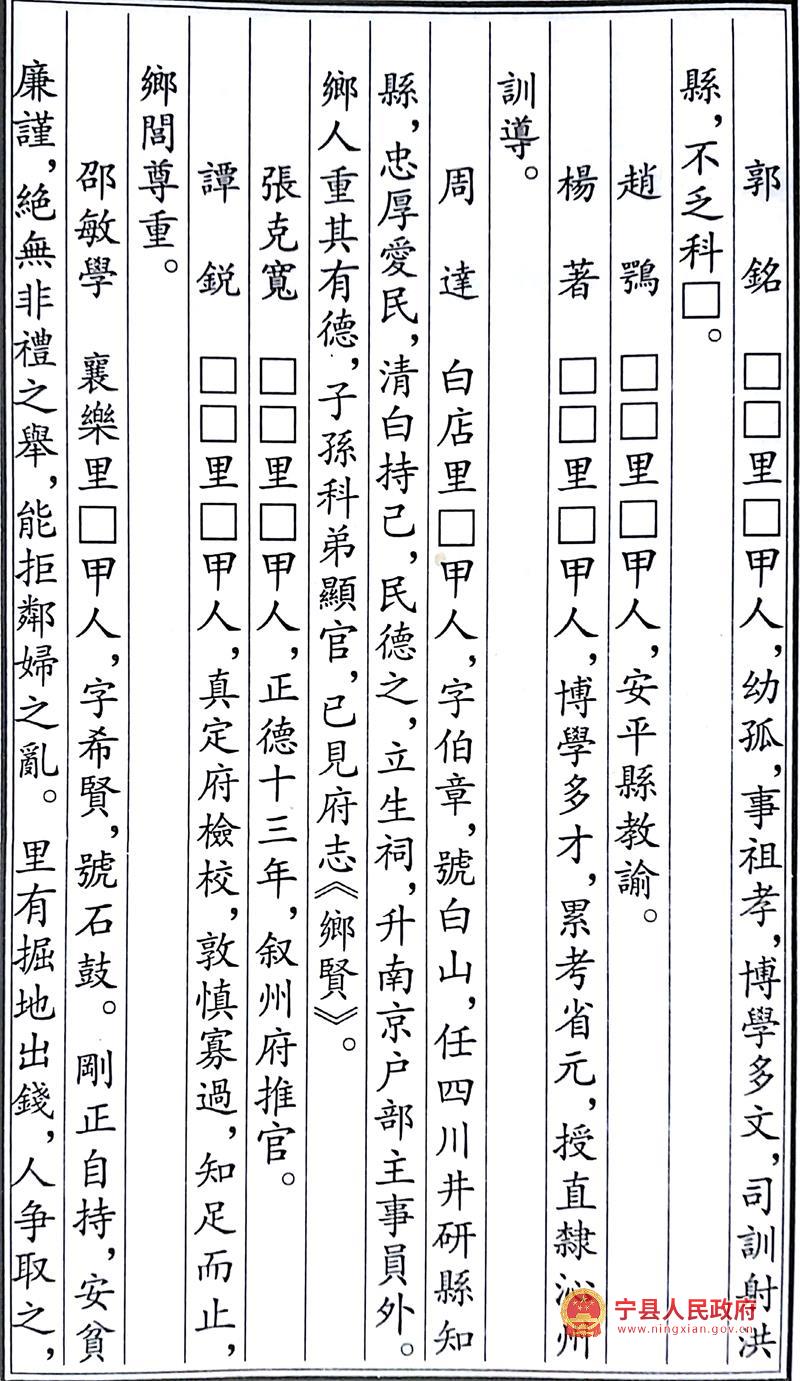 郭　銘　□□里□甲人，幼孤，事祖孝，博學多文，司訓射洪
縣，不乏科□。
趙　鶚　□□里□甲人，安平縣教諭。
楊　著　□□里□甲人，博學多才，累考省元，授直隸沁州
訓導。
周　達　白店里□甲人，字伯章，號白山，任四川井研縣知
縣，忠厚愛民，清白持己，民德之，立生祠，升南京户部主事員外。
鄉人重其有德，子孫科弟顯官，已見府志《鄉賢》。
張克寬　□□里□甲人，正德十三年，叙州府推官。
譚　鋭　□□里□甲人，真定府檢校，敦慎寡過，知足而止，
鄉閭尊重。
邵敏學　襄樂里□甲人，字希賢，號石鼓。剛正自持，安貧
廉謹，絶無非禮之舉，能拒鄰婦之亂。里有掘地出錢，人争取之，
宁县人民政府
www.ningxian.gov.cn